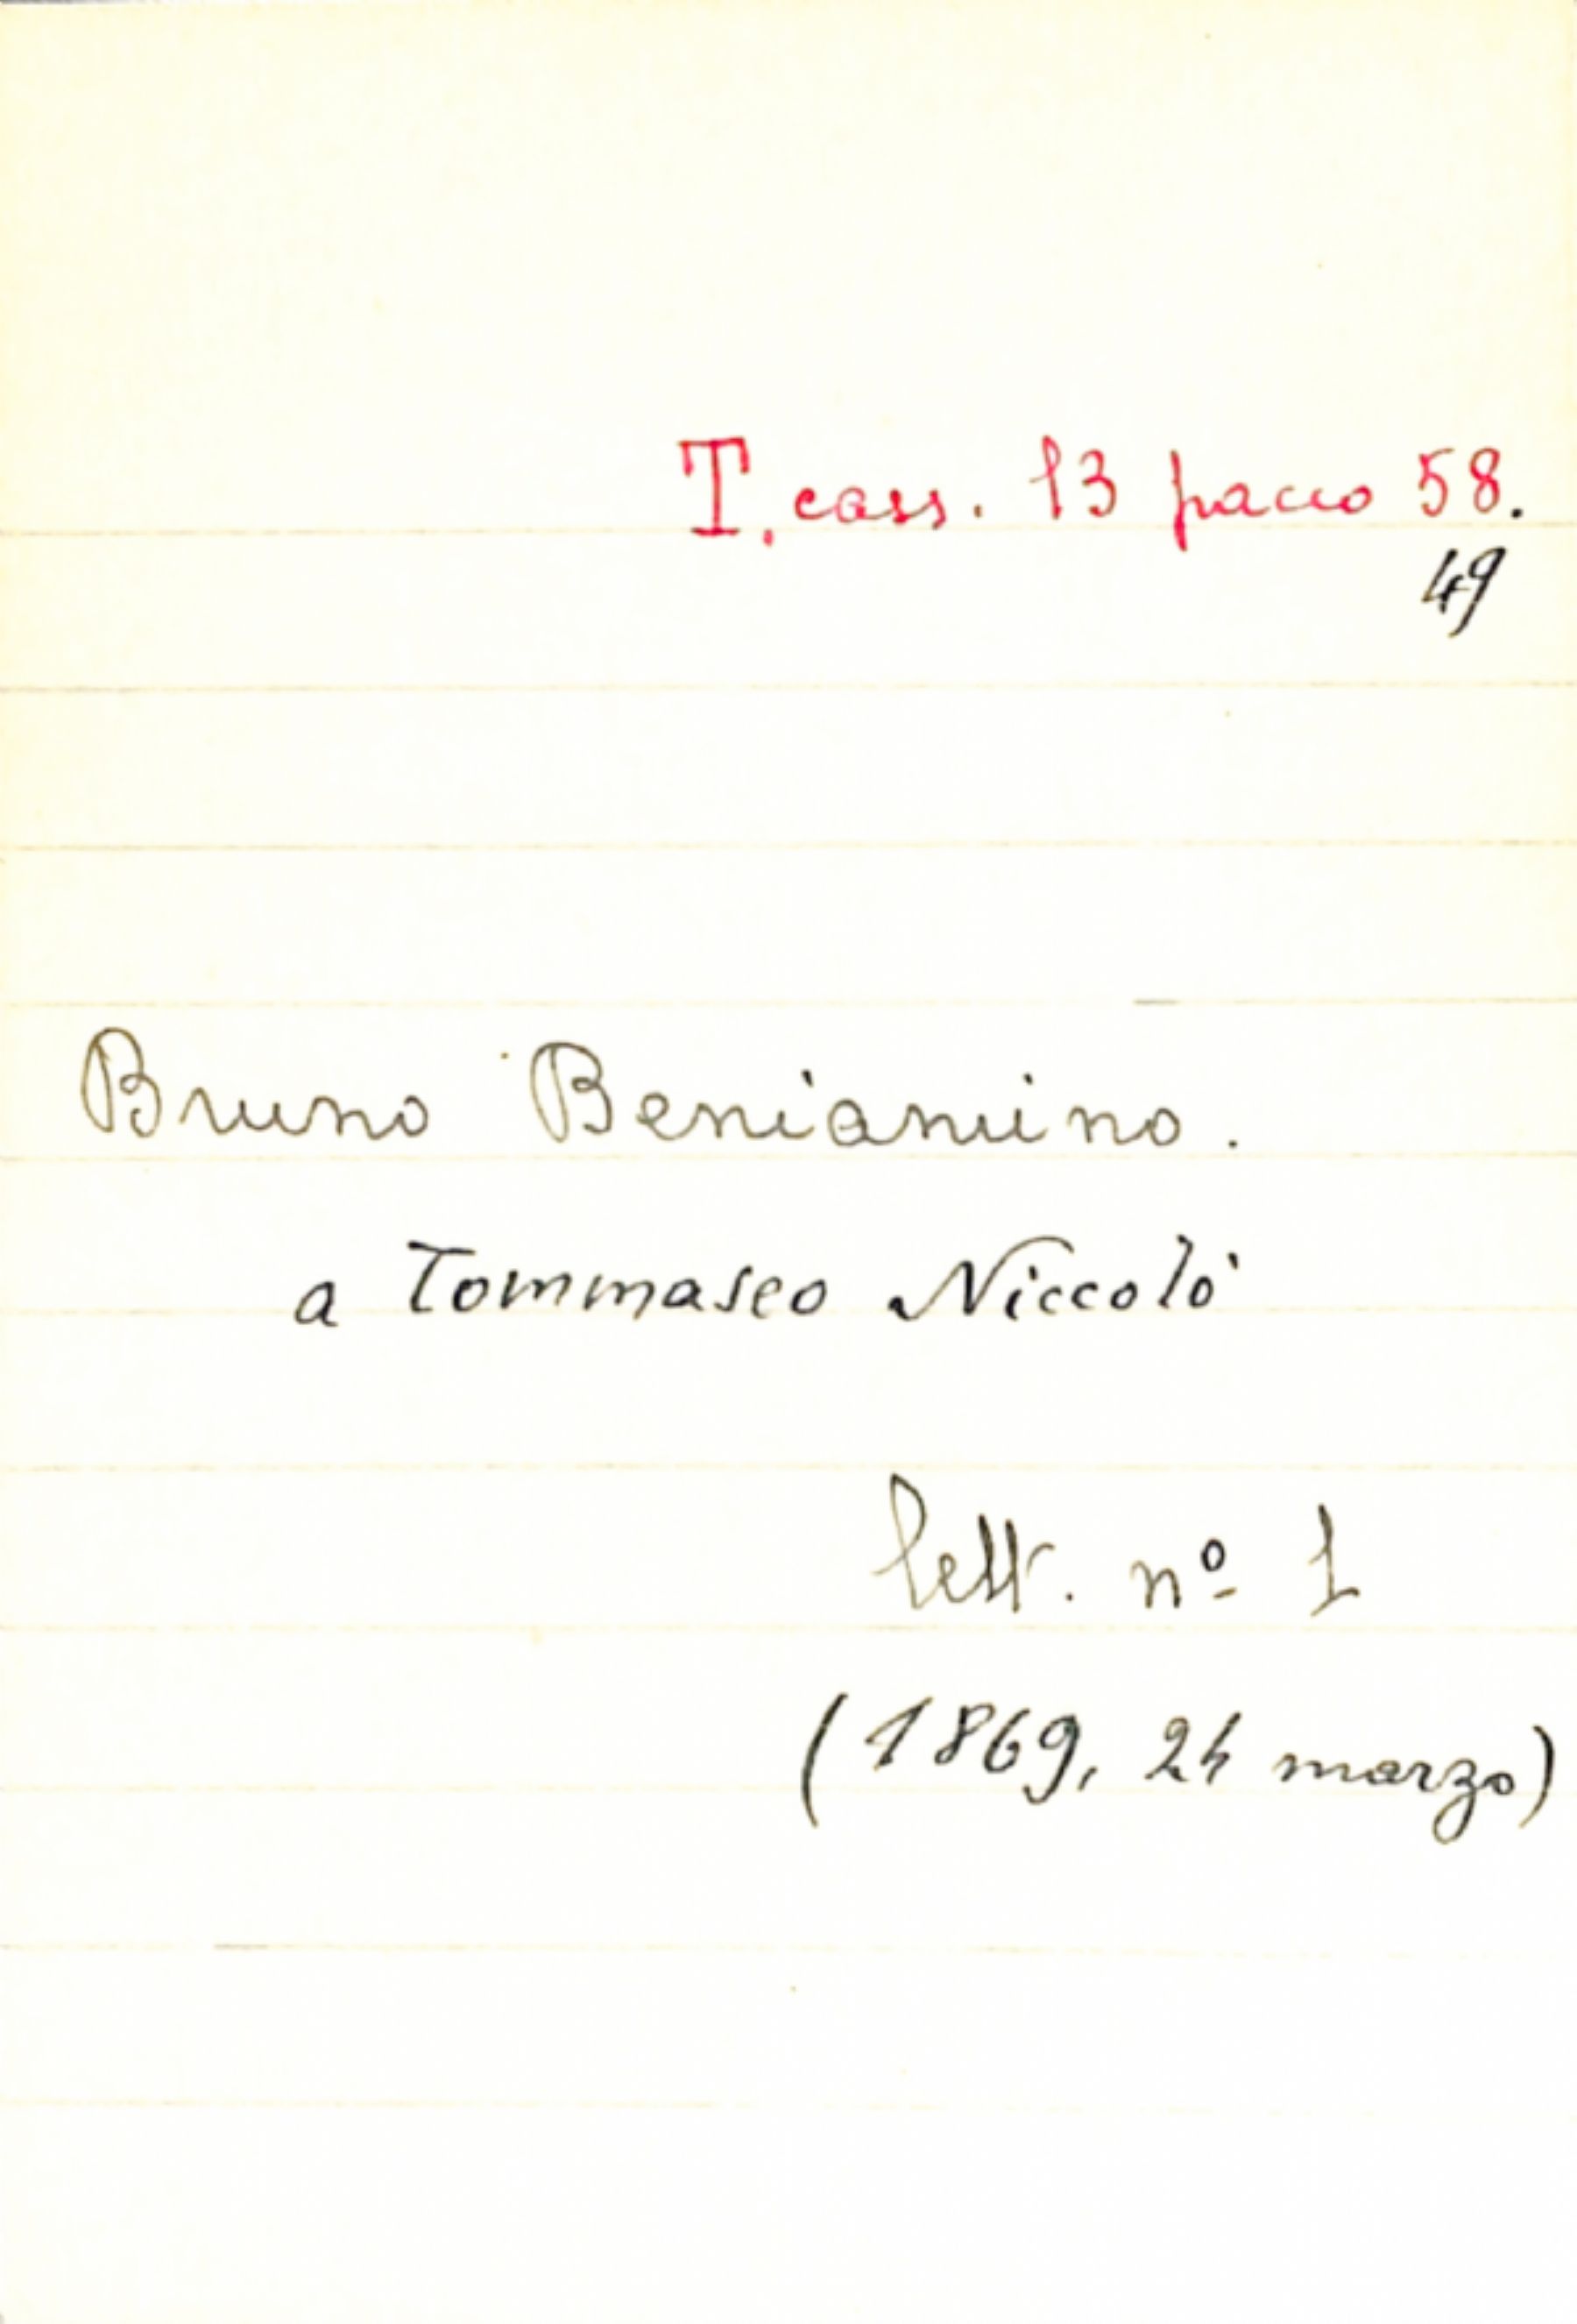 T. cass. 13 pacco 58.
49
Bruno Beniamino.
a Tommaseo Niccolò
lett. nº 1
(1869, 24 marzo)